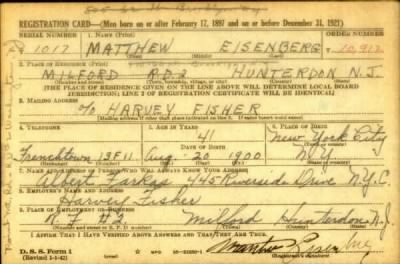 REGISTRATION CARD—(Men born on or after February 17, 1897 and on or before December 31, 1921)
SERIAL NUMBER 1. NAME (Print) ORDER NUMBER
1017 MATTHEW EISENBERG 10,912
(First) (Middle) (Last)
2. PLACE OF RESIDENCE (Print)
MILFORD R.D.2 HUNTERDON N.J.
(Number and street) (Town, township, village, or city) (County) (State)
[THE PLACE OF RESIDENCE GIVEN ON THE LINE ABOVE WILL DETERMINE LOCAL BOARD
JURISDICTION; LINE 2 OF REGISTRATION CERTIFICATE WILL BE IDENTICAL]
3. MAILING ADDRESS
c/o HARVEY FISHER
[Mailing address if other than place indicated on line 2. If same insert word same]
4. TELEPHONE 5. AGE IN YEARS 6. PLACE OF BIRTH
41 New York City
DATE OF BIRTH (Town or county)
Frenchtown 13F11 Aug. 20 1900 N.Y.
(Exchange) (Number) (Mo.) (Day) (Yr.) (State or country)
7. NAME AND ADDRESS OF PERSON WHO WILL ALWAYS KNOW YOUR ADDRESS
Albert Farkas 445 Riverside Drive N.Y.C.
8. EMPLOYER'S NAME AND ADDRESS
Harvey Fisher
9. PLACE OF EMPLOYMENT OR BUSINESS
#2 Milford Hunterdon N.J.
(Number and street or R. F. D. number) (Town) (County) (State)
I AFFIRM THAT I HAVE VERIFIED ABOVE ANSWERS AND THAT THEY ARE TRUE.
D. S. S. Form 1
(Revised 1-1-42)